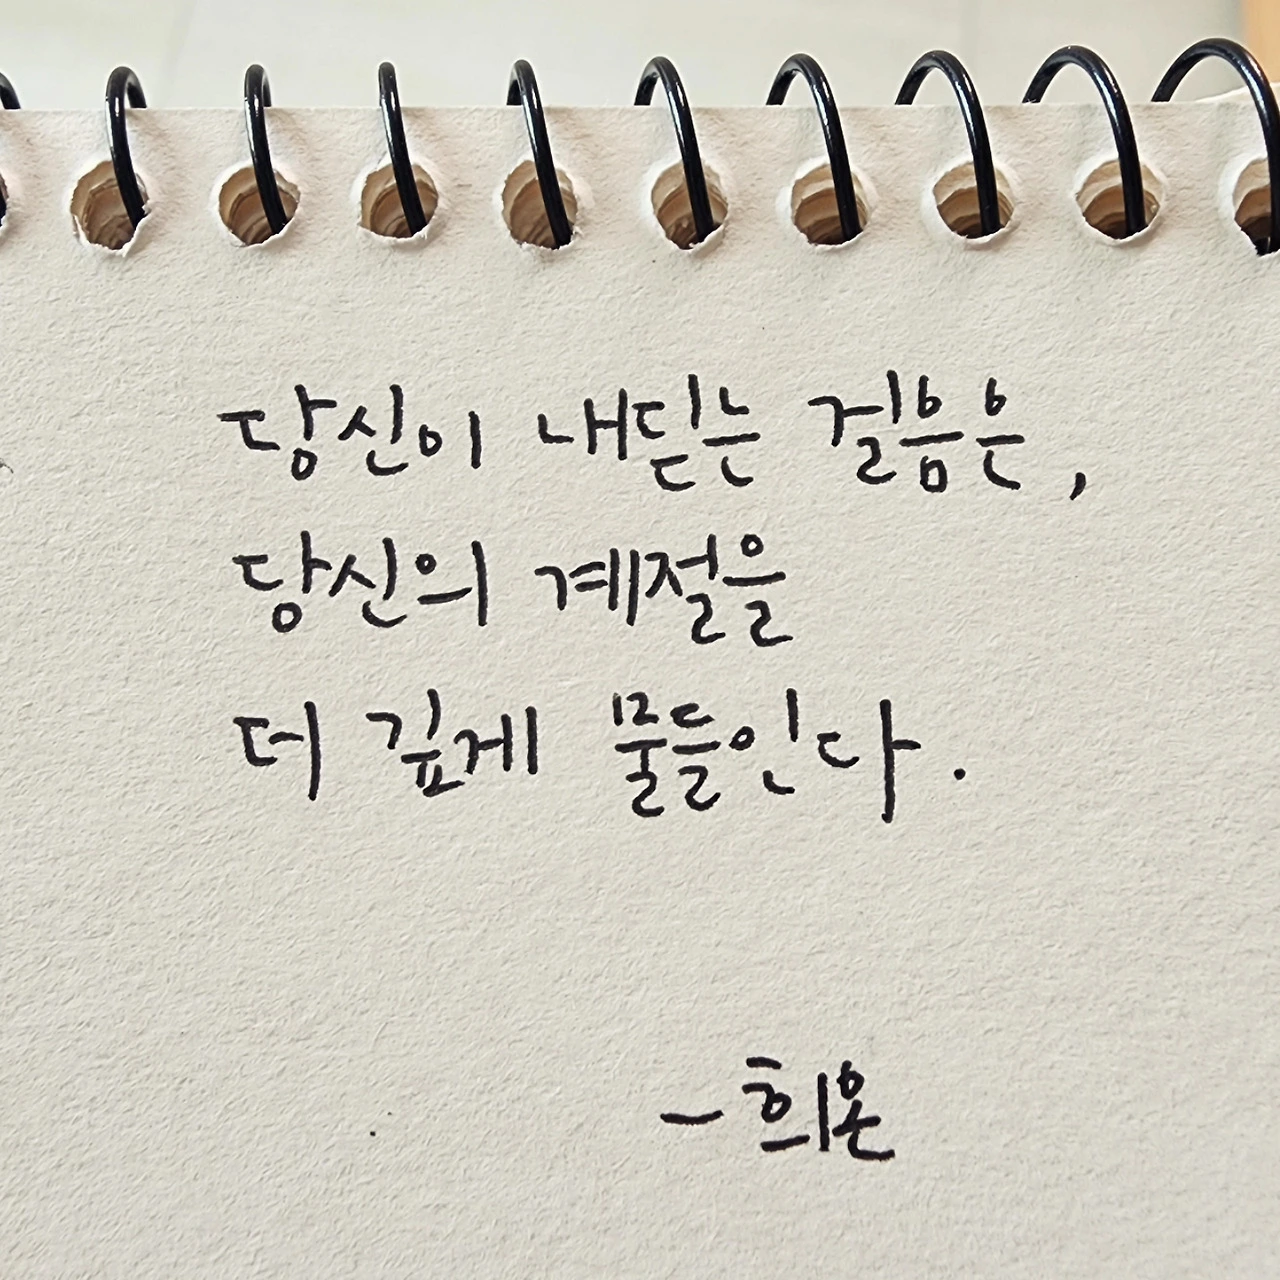 당신이 내딛는 걸음은,
당신의 계절을
더 깊게 물들인다.
- 희온